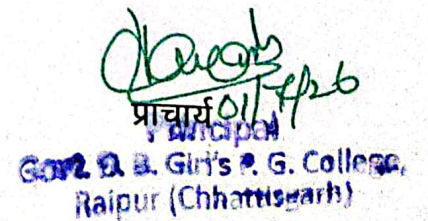 01/4/26
प्राचार्य
Principal
Govt. D. B. Girl's P. G. College,
Raipur (Chhattisgarh)